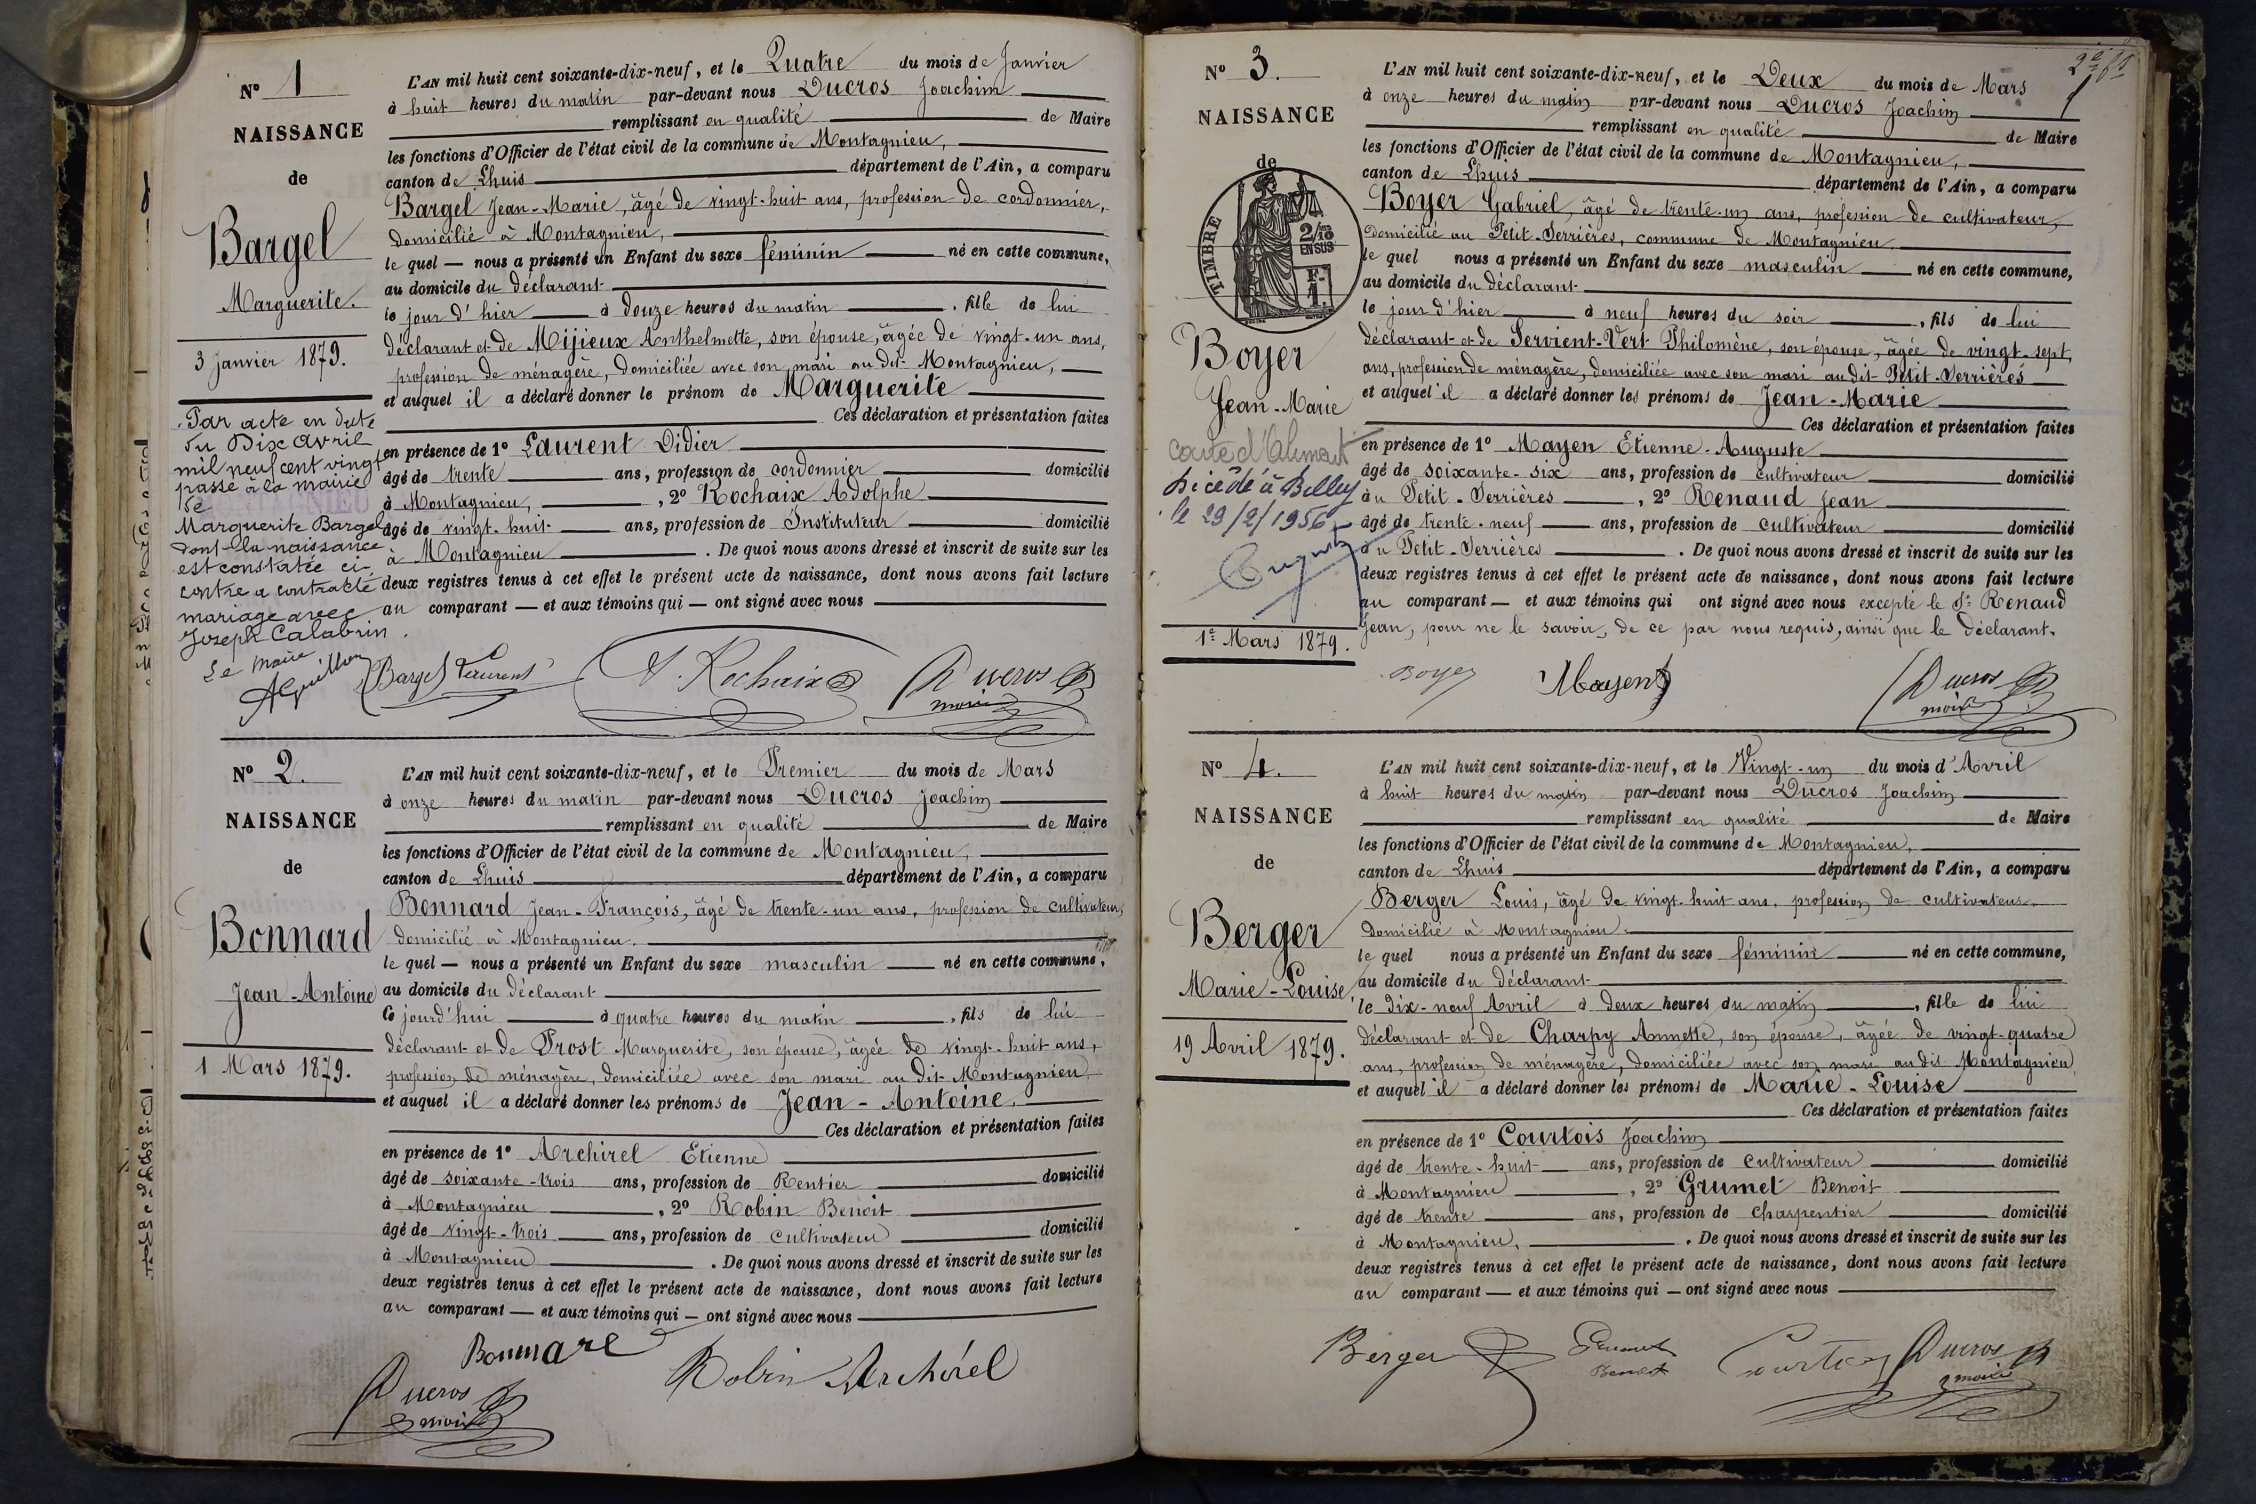 N° 1
NAISSANCE
de
Bargel
Marguerite.
3 Janvier 1879.
Par acte en date
du Dix avril
mil neuf cent vingt
passé à la mairie
Marguerite Bargel
dont la naissance
est constatée ci-
contre a contracté
mariage avec
Joseph Calabrin.
Le maire
L'AN mil huit cent soixante-dix-neuf, et le Quatre du mois de Janvier
à huit heures du matin par-devant nous Ducros Joachim
remplissant en qualité de Maire
les fonctions d'Officier de l'état civil de la commune de Montagnieu,
canton de Lhuis département de l'Ain, a comparu
Bargel Jean-Marie, âgé de vingt-huit ans, profession de cordonnier,
domicilié à Montagnieu,
le quel — nous a présenté un Enfant du sexe féminin né en cette commune,
au domicile du déclarant
le jour d'hier à douze heures du matin, fille de lui
déclarant et de Mijieux Anthelmette, son épouse, âgée de vingt-un ans,
profession de ménagère, domiciliée avec son mari au dit Montagnieu,
et auquel il a déclaré donner le prénom de Marguerite
Ces déclaration et présentation faites
en présence de 1° Laurent Didier
âgé de trente ans, profession de cordonnier domicilié
à Montagnieu, , 2° Rochaix Adolphe
âgé de vingt-huit ans, profession de Instituteur domicilié
à Montagnieu . De quoi nous avons dressé et inscrit de suite sur les
deux registres tenus à cet effet le présent acte de naissance, dont nous avons fait lecture
au comparant — et aux témoins qui — ont signé avec nous
Bargel Laurent A. Rochaix Ducros
maire
N° 2.
NAISSANCE
de
Bonnard
Jean-Antoine
1 Mars 1879.
L'AN mil huit cent soixante-dix-neuf, et le Premier du mois de Mars
à onze heures du matin par-devant nous Ducros Joachim
remplissant en qualité de Maire
les fonctions d'Officier de l'état civil de la commune de Montagnieu,
canton de Lhuis département de l'Ain, a comparu
Bonnard Jean-François, âgé de trente-un ans, profession de cultivateur,
domicilié à Montagnieu.
le quel — nous a présenté un Enfant du sexe masculin né en cette commune,
au domicile du déclarant
Ce jourd'hui à quatre heures du matin, fils de lui
déclarant et de Prost Marguerite, son épouse, âgée de vingt-huit ans,
profession de ménagère, domiciliée avec son mari au dit Montagnieu
et auquel il a déclaré donner les prénoms de Jean-Antoine.
Ces déclaration et présentation faites
en présence de 1° Archirel Etienne
âgé de soixante-trois ans, profession de Rentier domicilié
à Montagnieu , 2° Robin Benoit
âgé de vingt-trois ans, profession de cultivateur domicilié
à Montagnieu . De quoi nous avons dressé et inscrit de suite sur les
deux registres tenus à cet effet le présent acte de naissance, dont nous avons fait lecture
au comparant — et aux témoins qui — ont signé avec nous
Bonnard
Robin Archirel
Ducros
maire
N° 3.
NAISSANCE
de
TIMBRE
2/10
EN SUS
F.
1.
Boyer
Jean-Marie
Décédé à Belley
le 29/2/1956
1er Mars 1879.
L'AN mil huit cent soixante-dix-neuf, et le Deux du mois de Mars
à onze heures du matin par-devant nous Ducros Joachim
remplissant en qualité de Maire
les fonctions d'Officier de l'état civil de la commune de Montagnieu,
canton de Lhuis département de l'Ain, a comparu
Boyer Gabriel, âgé de trente-un ans, profession de cultivateur,
domicilié au Petit-Serrières, commune de Montagnieu
le quel nous a présenté un Enfant du sexe masculin né en cette commune,
au domicile du déclarant
le jour d'hier à neuf heures du soir, fils de lui
déclarant et de Servient-Vert Philomène, son épouse, âgée de vingt-sept
ans, profession de ménagère, domiciliée avec son mari au dit Petit-Serrières
et auquel il a déclaré donner les prénoms de Jean-Marie
Ces déclaration et présentation faites
en présence de 1° Mayen Etienne-Auguste
âgé de soixante-six ans, profession de cultivateur domicilié
au Petit-Serrières , 2° Renaud Jean
âgé de trente-neuf ans, profession de cultivateur domicilié
au Petit-Serrières . De quoi nous avons dressé et inscrit de suite sur les
deux registres tenus à cet effet le présent acte de naissance, dont nous avons fait lecture
au comparant — et aux témoins qui ont signé avec nous excepté le Sr Renaud
Jean, pour ne le savoir, de ce par nous requis, ainsi que le déclarant.
Boyer Mayen Ducros
maire
N° 4.
NAISSANCE
de
Berger
Marie-Louise
19 Avril 1879.
L'AN mil huit cent soixante-dix-neuf, et le Vingt-un du mois d'Avril
à huit heures du matin par-devant nous Ducros Joachim
remplissant en qualité de Maire
les fonctions d'Officier de l'état civil de la commune de Montagnieu,
canton de Lhuis département de l'Ain, a comparu
Berger Louis, âgé de vingt-huit ans, profession de cultivateur
domicilié à Montagnieu.
le quel nous a présenté un Enfant du sexe féminin né en cette commune,
au domicile du déclarant
le dix-neuf Avril à deux heures du matin, fille de lui
déclarant et de Charpy Annette, son épouse, âgée de vingt-quatre
ans, profession de ménagère, domiciliée avec son mari au dit Montagnieu
et auquel il a déclaré donner les prénoms de Marie-Louise
Ces déclaration et présentation faites
en présence de 1° Courtois Joachim
âgé de trente-huit ans, profession de cultivateur domicilié
à Montagnieu , 2° Grumet Benoit
âgé de trente ans, profession de charpentier domicilié
à Montagnieu, . De quoi nous avons dressé et inscrit de suite sur les
deux registres tenus à cet effet le présent acte de naissance, dont nous avons fait lecture
au comparant — et aux témoins qui — ont signé avec nous
Berger Grumet Courtois Ducros
Benoit maire